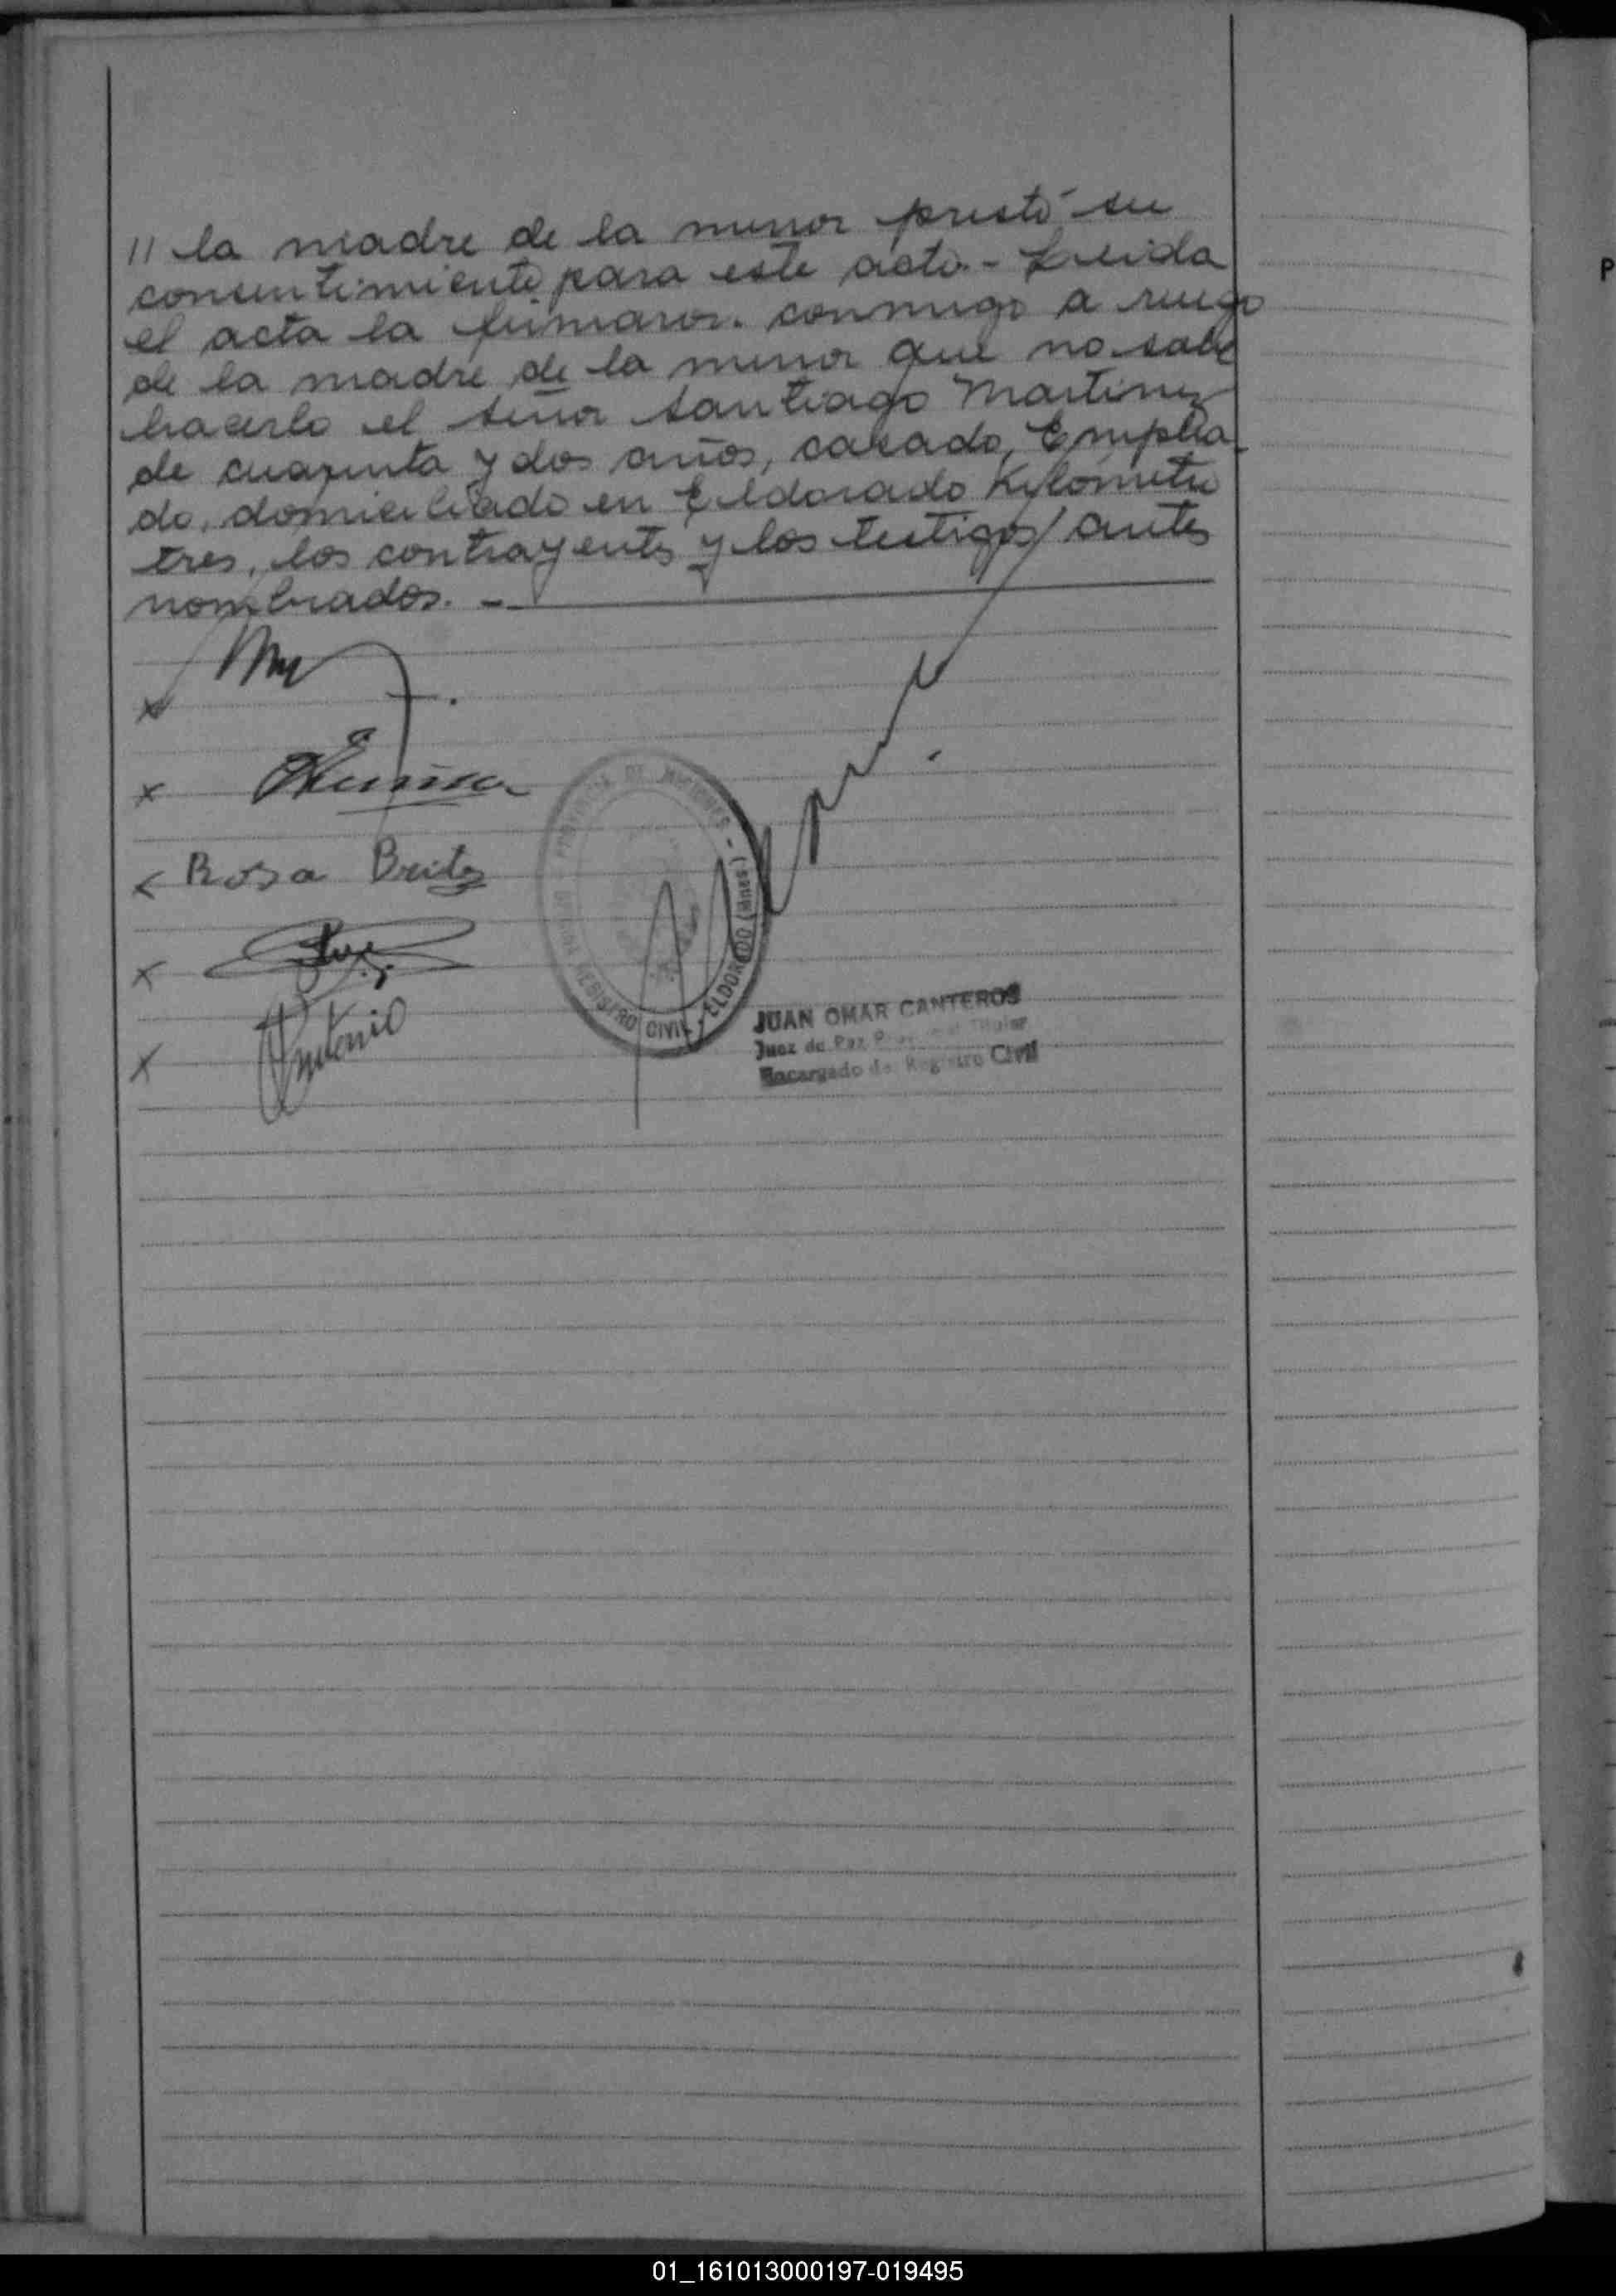 // la madre de la menor prestó su
consentimiento para este acto.- Leida
el acta la firmaron conmigo a ruego
de la madre de la menor que no sabe
hacerlo el señor Santiago Martinez
de cuarenta y dos años, casado, Emplea-
do, domiciliado en Eldorado Kilómetro
tres, los contrayentes y los testigos antes
nombrados. -
x
x
Rosa Britez
x
x Antonio
PROVINCIA DE MISIONES - REGISTRO CIVIL - ELDORADO (Mnes)
JUAN OMAR CANTEROS
Juez de Paz Titular
Encargado de Registro Civil
P
01_161013000197-019495